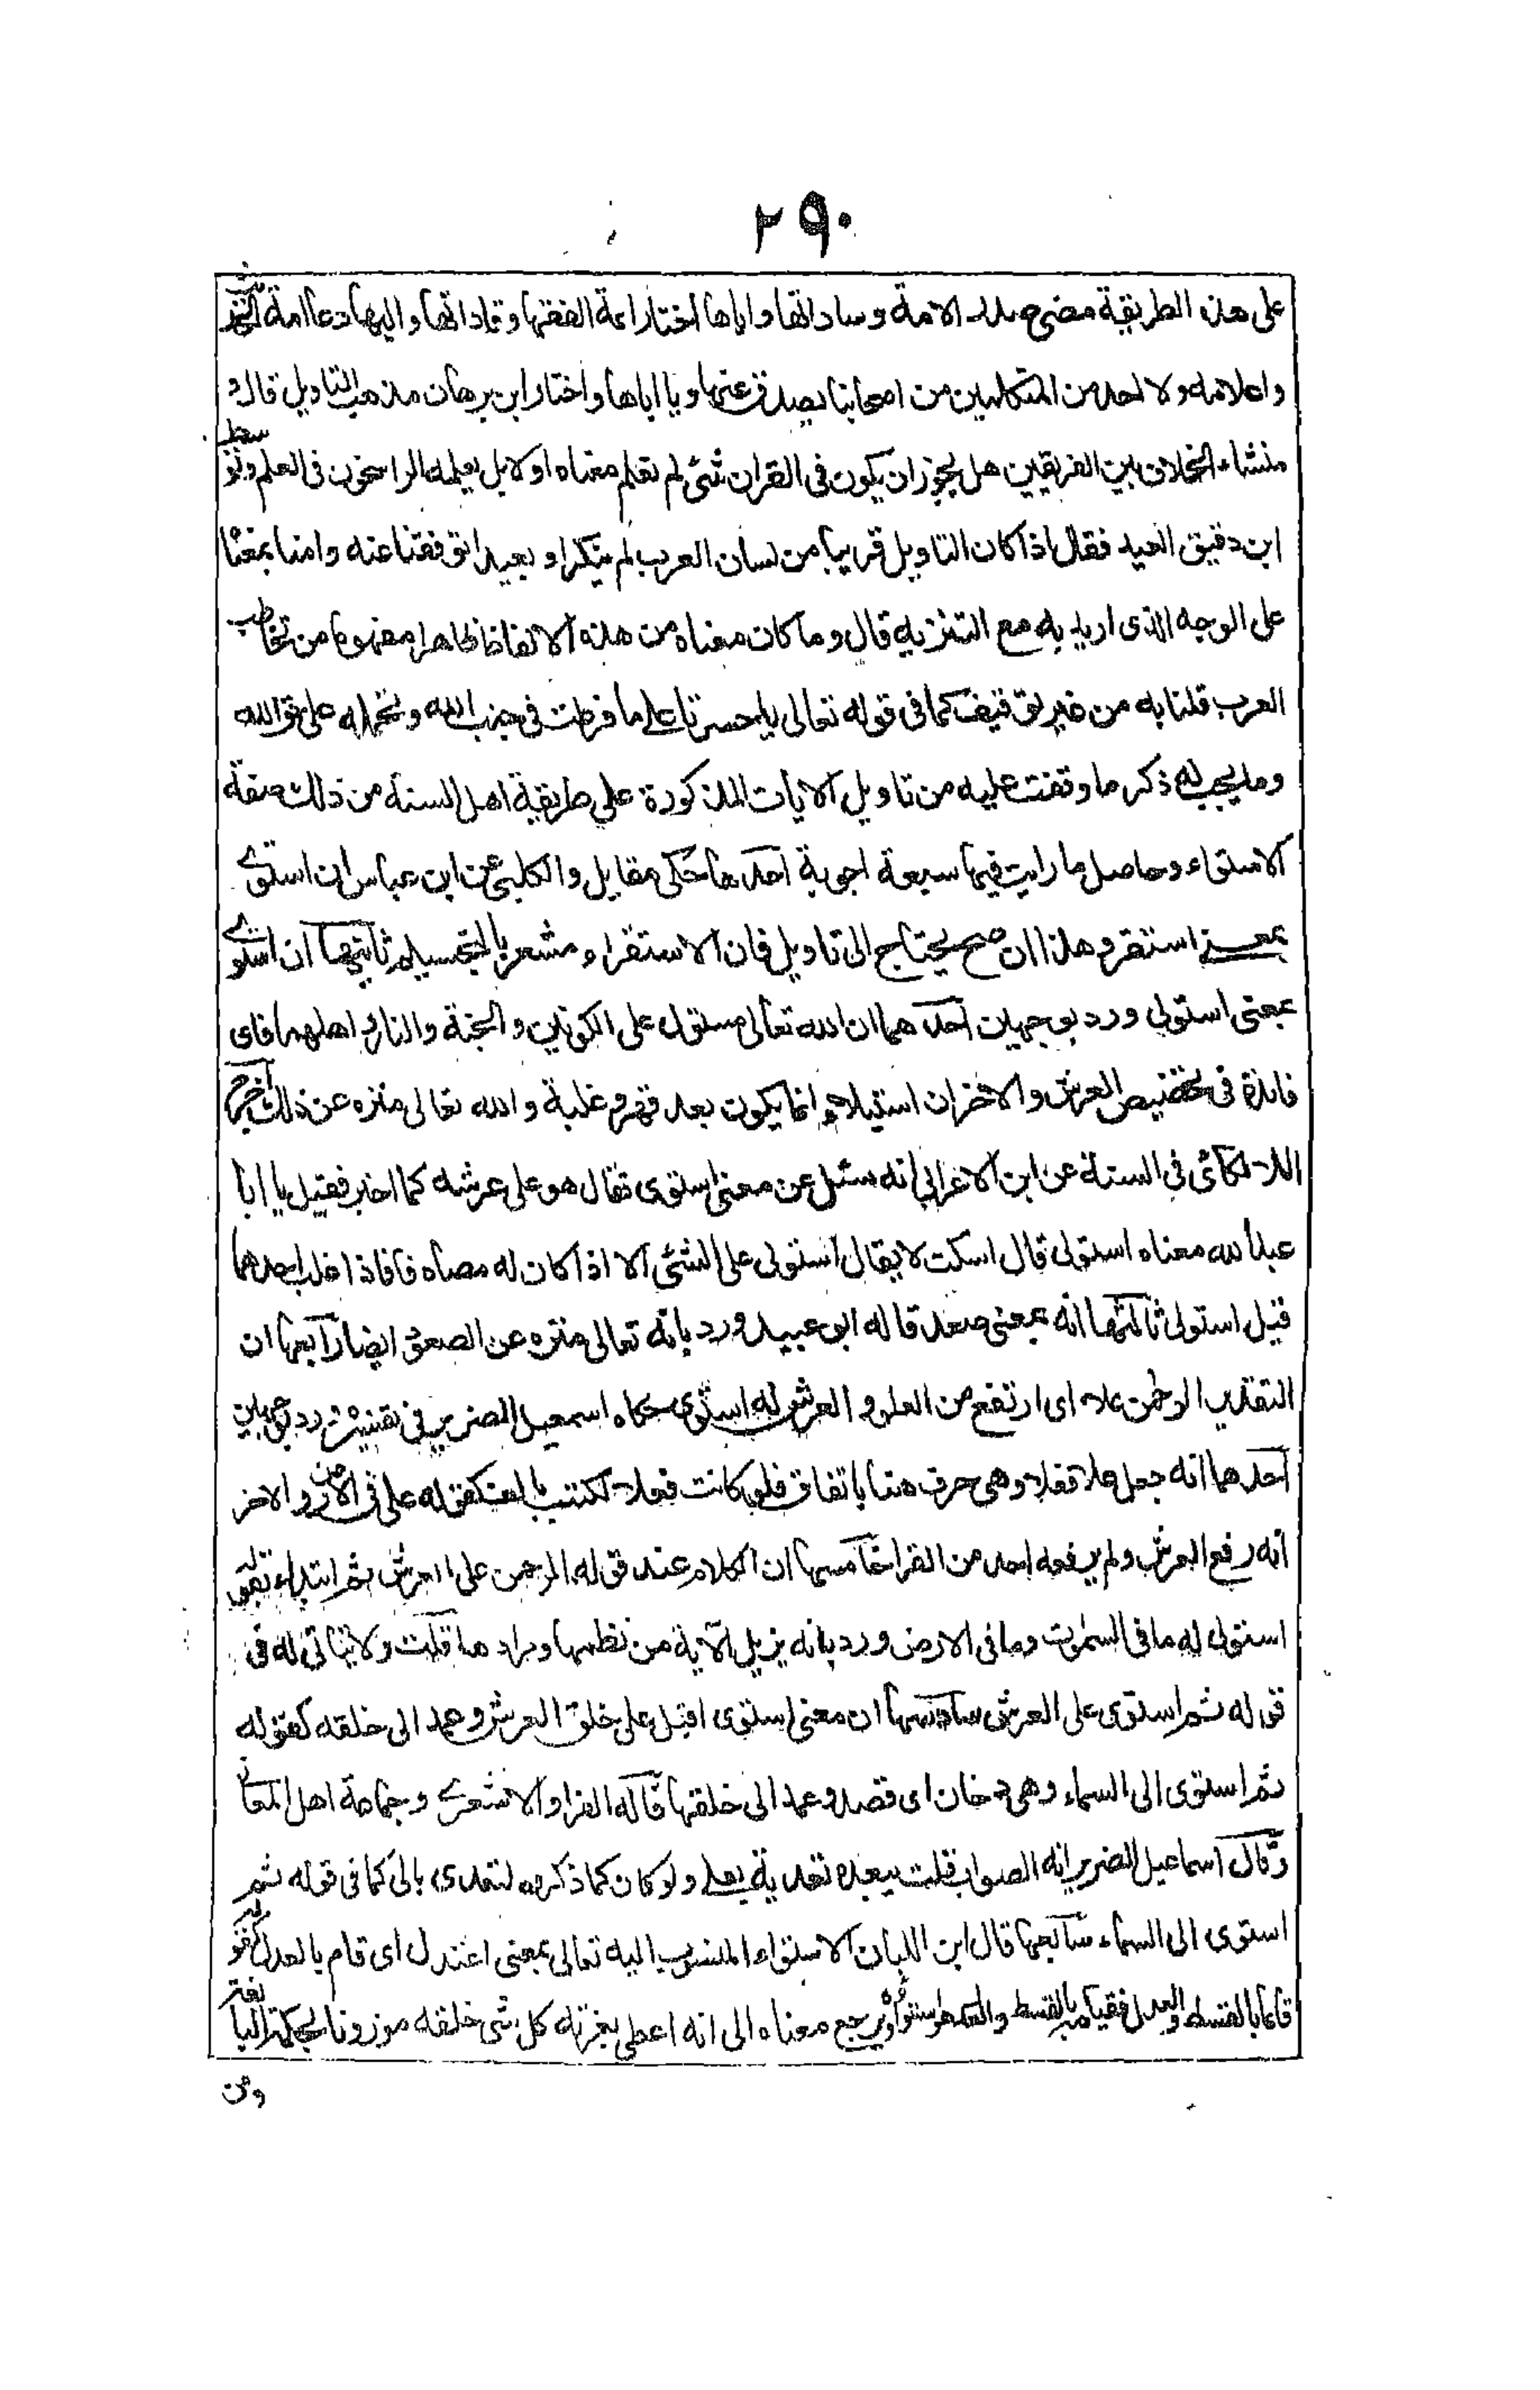 ٢٩٠
على هذه الطريقة مضى صدر الامة وساداتها واياها اختار ائمة الفقهاء وقاداتها واليها دعا ائمة الحديث
واعلامه ولا احد من المتكلمين من اصحابنا يصدف عنها ويا اباها واختار ابن برهان مذهب التاويل قال و
منشاء الخلاف بين الفريقين هل يجوز ان يكون فى القران شئ لم نعلم معناه اولا بل يعلمه الراسخون فى العلم وتوسط
ابن دقيق العيد فقال اذا كان التاويل قريبا من لسان العرب لم ينكر او بعيدا توقفنا عنه وامنا بمعناه
على الوجه الذى اريد به مع التنزيه قال وما كان معناه من هذه الالفاظ ظاهرا مفهوما من تخاطب
العرب قلنا به من غير توقيف كما فى قوله تعالى يا حسرتا على ما فرطت فى جنب الله ونحمله على حق الله
وما يجب له ذكر ما وقفت عليه من تاويل الايات المذكورة على طريقة اهل السنة من ذلك صفة
الاستواء وحاصل ما رايت فيها سبعة اجوبة احدها حكى مقاتل والكلبى عن ابن عباس ان استوى
بمعنى استقر وهذا ان صح يحتاج الى تاويل فان الاستقرار مشعر بالتجسيم ثانيها ان استوى
بمعنى استولى ورد بوجهين احدهما ان الله تعالى مستول على الكونين والجنة والنار واهلهما فاى
فائدة فى تخصيص العرش والاخر ان استيلاء انما يكون بعد قهر وغلبة والله تعالى منزه عن ذلك اخرج
اللالكائى فى السنة عن ابن الاعرابى انه سئل عن معنى استوى فقال هو على عرشه كما اخبر فقيل يا ابا
عبد الله معناه استولى قال اسكت لا يقال استولى على الشئ الا اذا كان له مضاد فاذا غلب احدهما
قيل استولى ثالثها انه بمعنى صعد قاله ابو عبيد ورد بانه تعالى منزه عن الصعود ايضا رابعها ان
التقدير الرحمن علا اى ارتفع من العلو والعرش له استوى حكاه اسمعيل الضرير فى تفسيره ورد بوجهين
احدهما انه جعل علا فعلا وهى حرف هنا باتفاق فلو كانت فعلا لكتبت بالف كقوله علا فى الارض والاخر
انه رفع العرش ولم يرفعه احد من القرا خامسها ان الكلام عند قوله الرحمن على العرش ثم ابتداء بقوله
استوى له ما فى السموت وما فى الارض ورد بانه يزيل الاية من نظمها ومراد ها قلت ولا يتاتى له فى
قوله ثم استوى على العرش سادسها ان معنى استوى اقبل على خلق العرش وعمد الى خلقه كقوله
ثم استوى الى السماء وهى دخان اى قصد وعمد الى خلقها قاله الفرا والاشعرى وجماعة اهل المعانى
وقال اسماعيل الضرير انه الصواب قلت يبعده تعديته بعلى ولو كان كما ذكروه لتعدى بالى كما فى قوله ثم
استوى الى السماء سابعها قال ابن اللبان الاستواء المنسوب اليه تعالى بمعنى اعتدل اى قام بالعدل كقوله
قائما بالقسط والعدل فقيامه بالقسط والعدل هو استواؤه ويرجع معناه الى انه اعطى بعزته كل شئ خلقه موزونا بحكمته البالغة
ومن